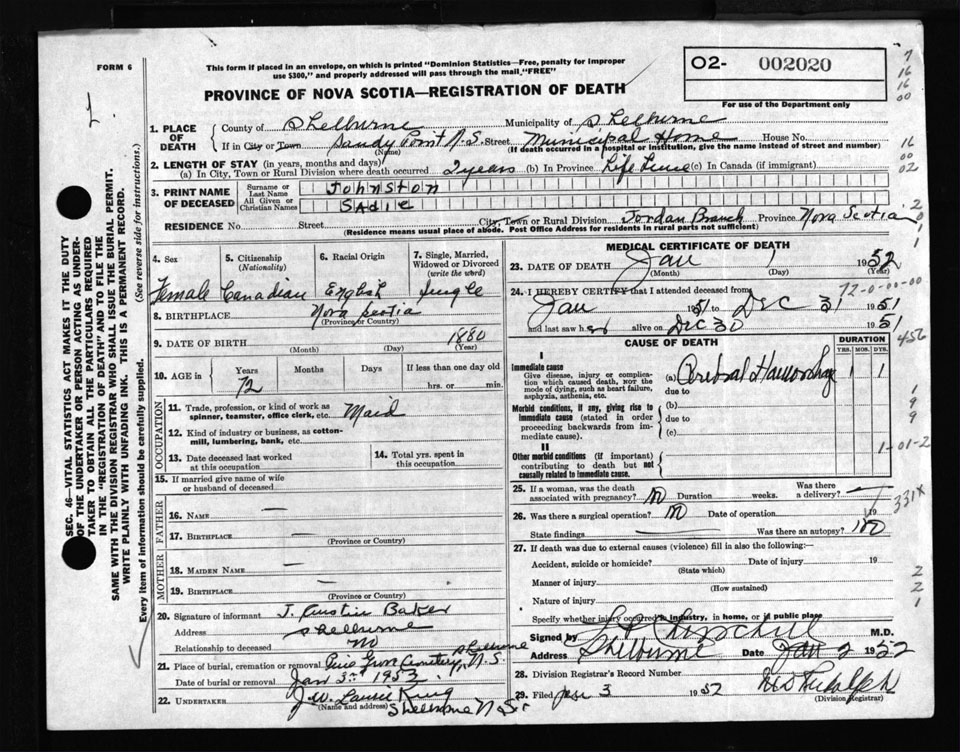 FORM 6
This form if placed in an envelope, on which is printed "Dominion Statistics—Free, penalty for improper
use $300," and properly addressed will pass through the mail "FREE"
PROVINCE OF NOVA SCOTIA—REGISTRATION OF DEATH
O2- 002020
For use of the Department only
1. PLACE OF DEATH
County of Shelburne Municipality of Shelburne
If in City or Town Sandy Point N.S. Street Municipal Home House No.
(Name) (If death occurred in a hospital or institution, give the name instead of street and number)
2. LENGTH OF STAY (in years, months and days)
(a) In City, Town or Rural Division where death occurred 2 years (b) In Province Life Time (c) In Canada (if immigrant)
3. PRINT NAME OF DECEASED
Surname or Last Name JOHNSTON
All Given or Christian Names SADIE
RESIDENCE No. Street City, Town or Rural Division Jordan Branch Province Nova Scotia
(Residence means usual place of abode. Post Office Address for residents in rural parts not sufficient)
4. Sex 5. Citizenship (Nationality) 6. Racial Origin 7. Single, Married, Widowed or Divorced (write the word)
Female Canadian English Single
8. BIRTHPLACE Nova Scotia
(Province or Country)
9. DATE OF BIRTH 1880
(Month) (Day) (Year)
10. AGE in Years Months Days If less than one day old
72 hrs. or min.
OCCUPATION
11. Trade, profession, or kind of work as spinner, teamster, office clerk, etc. Maid
12. Kind of industry or business, as cotton-mill, lumbering, bank, etc.
13. Date deceased last worked at this occupation
14. Total yrs. spent in this occupation
15. If married give name of wife or husband of deceased
FATHER
16. NAME —
17. BIRTHPLACE —
(Province or Country)
MOTHER
18. MAIDEN NAME —
19. BIRTHPLACE —
(Province or Country)
20. Signature of informant J. Austin Baker
Address Shelburne
Relationship to deceased no
21. Place of burial, cremation or removal Pine Grove Cemetery, Shelburne N.S.
Date of burial or removal Jan 3rd 1952
22. UNDERTAKER J.W. King
(Name and address) Shelburne N.S.
MEDICAL CERTIFICATE OF DEATH
23. DATE OF DEATH Jan 1 1952
(Month) (Day) (Year)
24. I HEREBY CERTIFY that I attended deceased from
72-0-00-00
Jan 1951 to Dec 31 1951
and last saw her alive on Dec 30 1951
CAUSE OF DEATH DURATION
YRS. MOS. DYS.
I
Immediate cause
Give disease, injury or complication which caused death, NOT the mode of dying, such as heart failure, asphyxia, asthenia, etc.
(a) Cerebral Hemorrhage 1 1
due to
Morbid conditions, if any, giving rise to immediate cause (stated in order proceeding backwards from immediate cause).
(b)
due to
(c)
II
Other morbid conditions (if important) contributing to death but not causally related to immediate cause.
1-01-2
25. If a woman, was the death associated with pregnancy? no Duration weeks. Was there a delivery? —
26. Was there a surgical operation? no Date of operation 19
State findings Was there an autopsy? no
27. If death was due to external causes (violence) fill in also the following:—
Accident, suicide or homicide? Date of injury 19
(State which)
Manner of injury
(How sustained)
Nature of injury
Specify whether injury occurred in industry, in home, or in public place
Signed by Churchill M.D.
Address Shelburne Date Jan 2 1952
28. Division Registrar's Record Number
29. Filed Jan 3 1952
(Division Registrar)
SEC. 46—VITAL STATISTICS ACT MAKES IT THE DUTY
OF THE UNDERTAKER OR PERSON ACTING AS UNDER-
TAKER TO OBTAIN ALL THE PARTICULARS REQUIRED
IN THE "REGISTRATION OF DEATH" AND TO FILE THE
SAME WITH THE DIVISION REGISTRAR WHO SHALL ISSUE THE BURIAL PERMIT.
WRITE PLAINLY WITH UNFADING INK. THIS IS A PERMANENT RECORD.
Every item of information should be carefully supplied. (See reverse side for instructions.)
7
16
16
00
16
00
02
2
0
1
456
1
9
9
331X
2
2
1